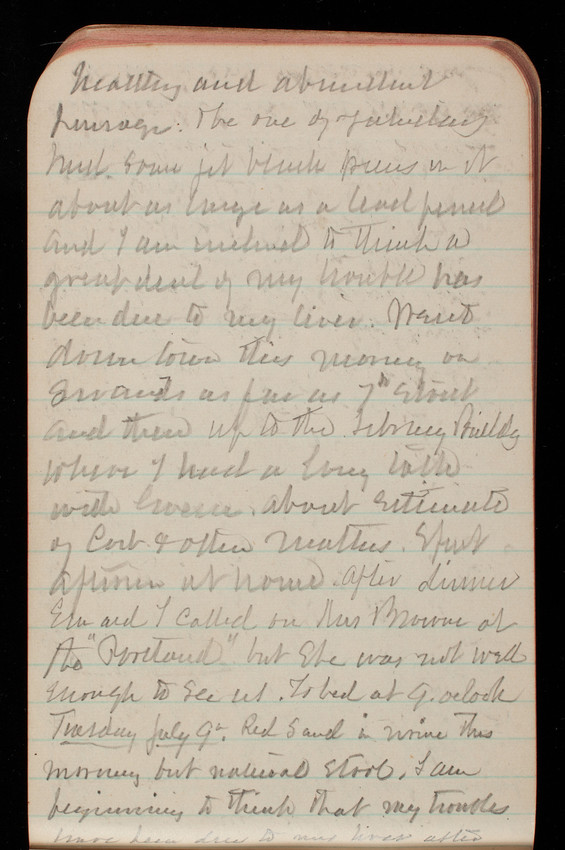 healthy and abundant
passage. The one of yesterday
had some jet black pieces in it
about as large as a lead pencil
and I am inclined to think a
great deal of my trouble has
been due to my liver. Went
down town this morning on
errands as far as 7th Street
and then up to the Library Building
where I had a long talk
with Green about Estimate
of Cost & other matters. Spent
afternn at home. After dinner
Em and I called on Mrs Browne at
the "Portland" but She was not well
enough to see us. To bed at 9. oclock
Tuesday July 9th. Red Sand in urine this
morning but natural stool. I am
beginning to think that my troubles
have been due to my liver after